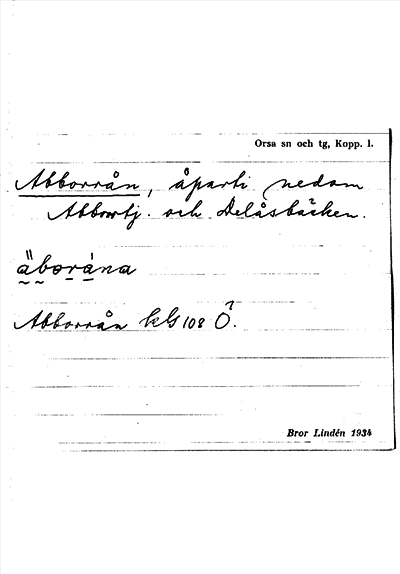 Orsa sn och tg, Kopp. l.
Abborrån, åparti nedom
Abborrtj. och Delåsbäcken.
äborána
Abborrån kls 108 Ö?.
Bror Lindén 1934